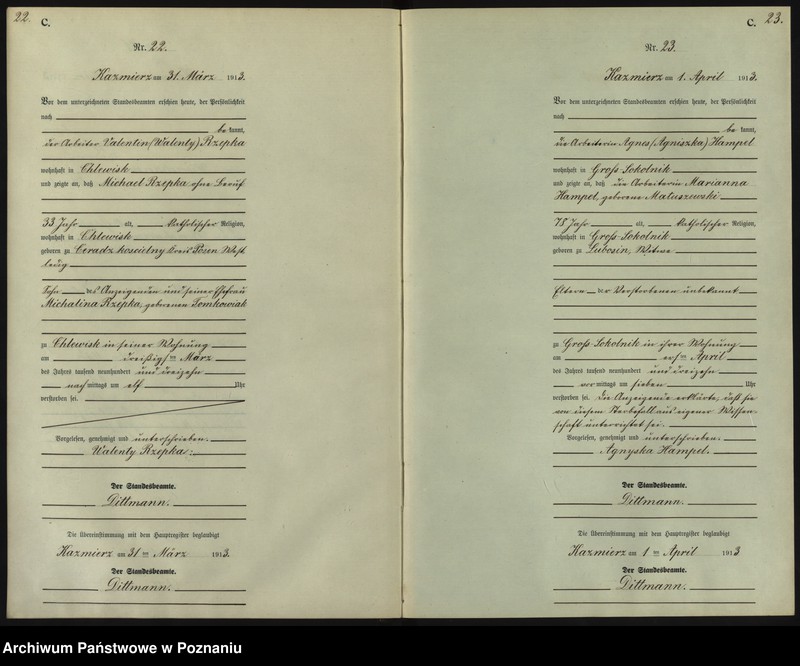 22.
C.
Nr. 22.
Kazmierz am 31. März 1913.
Vor dem unterzeichneten Standesbeamten erschien heute, der Persönlichkeit
nach
be kannt,
der Arbeiter Valentin (Walenty) Rzepka
wohnhaft in Chlewisk
und zeigte an, daß Michael Rzepka ohne Beruf
33 Jahr alt, katholischer Religion,
wohnhaft in Chlewisk
geboren zu Ceradz koscielny Kreis Posen West
ledig
Sohn des Anzeigenden und seiner Ehefrau
Michalina Rzepka, geborenen Tomkowiak
zu Chlewisk in seiner Wohnung
am dreißigsten März
des Jahres tausend neunhundert und dreizehn
nach mittags um elf Uhr
verstorben sei.
Vorgelesen, genehmigt und unterschrieben.
Walenty Rzepka.
Der Standesbeamte.
Dittmann.
Die Übereinstimmung mit dem Hauptregister beglaubigt
Kazmierz am 31 ten März 1913.
Der Standesbeamte.
Dittmann.
C.
23.
Nr. 23.
Kazmierz am 1. April 1913.
Vor dem unterzeichneten Standesbeamten erschien heute, der Persönlichkeit
nach
be kannt,
die Arbeiterin Agnes (Agniszka) Hampel
wohnhaft in Groß Sokolnik
und zeigte an, daß die Arbeiterin Marianna
Hampel, geborene Matuszewski
78 Jahr alt, katholischer Religion,
wohnhaft in Groß-Sokolnik
geboren zu Lubosin, Witwe
Eltern der Verstorbenen unbekannt
zu Groß Sokolnik in ihrer Wohnung
am ersten April
des Jahres tausend neunhundert und dreizehn
vor mittags um sieben Uhr
verstorben sei. Die Anzeigende erklärte, daß sie
von diesem Sterbefall aus eigener Wissen-
schaft unterrichtet sei.
Vorgelesen, genehmigt und unterschrieben.
Agnyska Hampel.
Der Standesbeamte.
Dittmann.
Die Übereinstimmung mit dem Hauptregister beglaubigt
Kazmierz am 1 ten April 1913
Der Standesbeamte.
Dittmann.
Archiwum Państwowe w Poznaniu